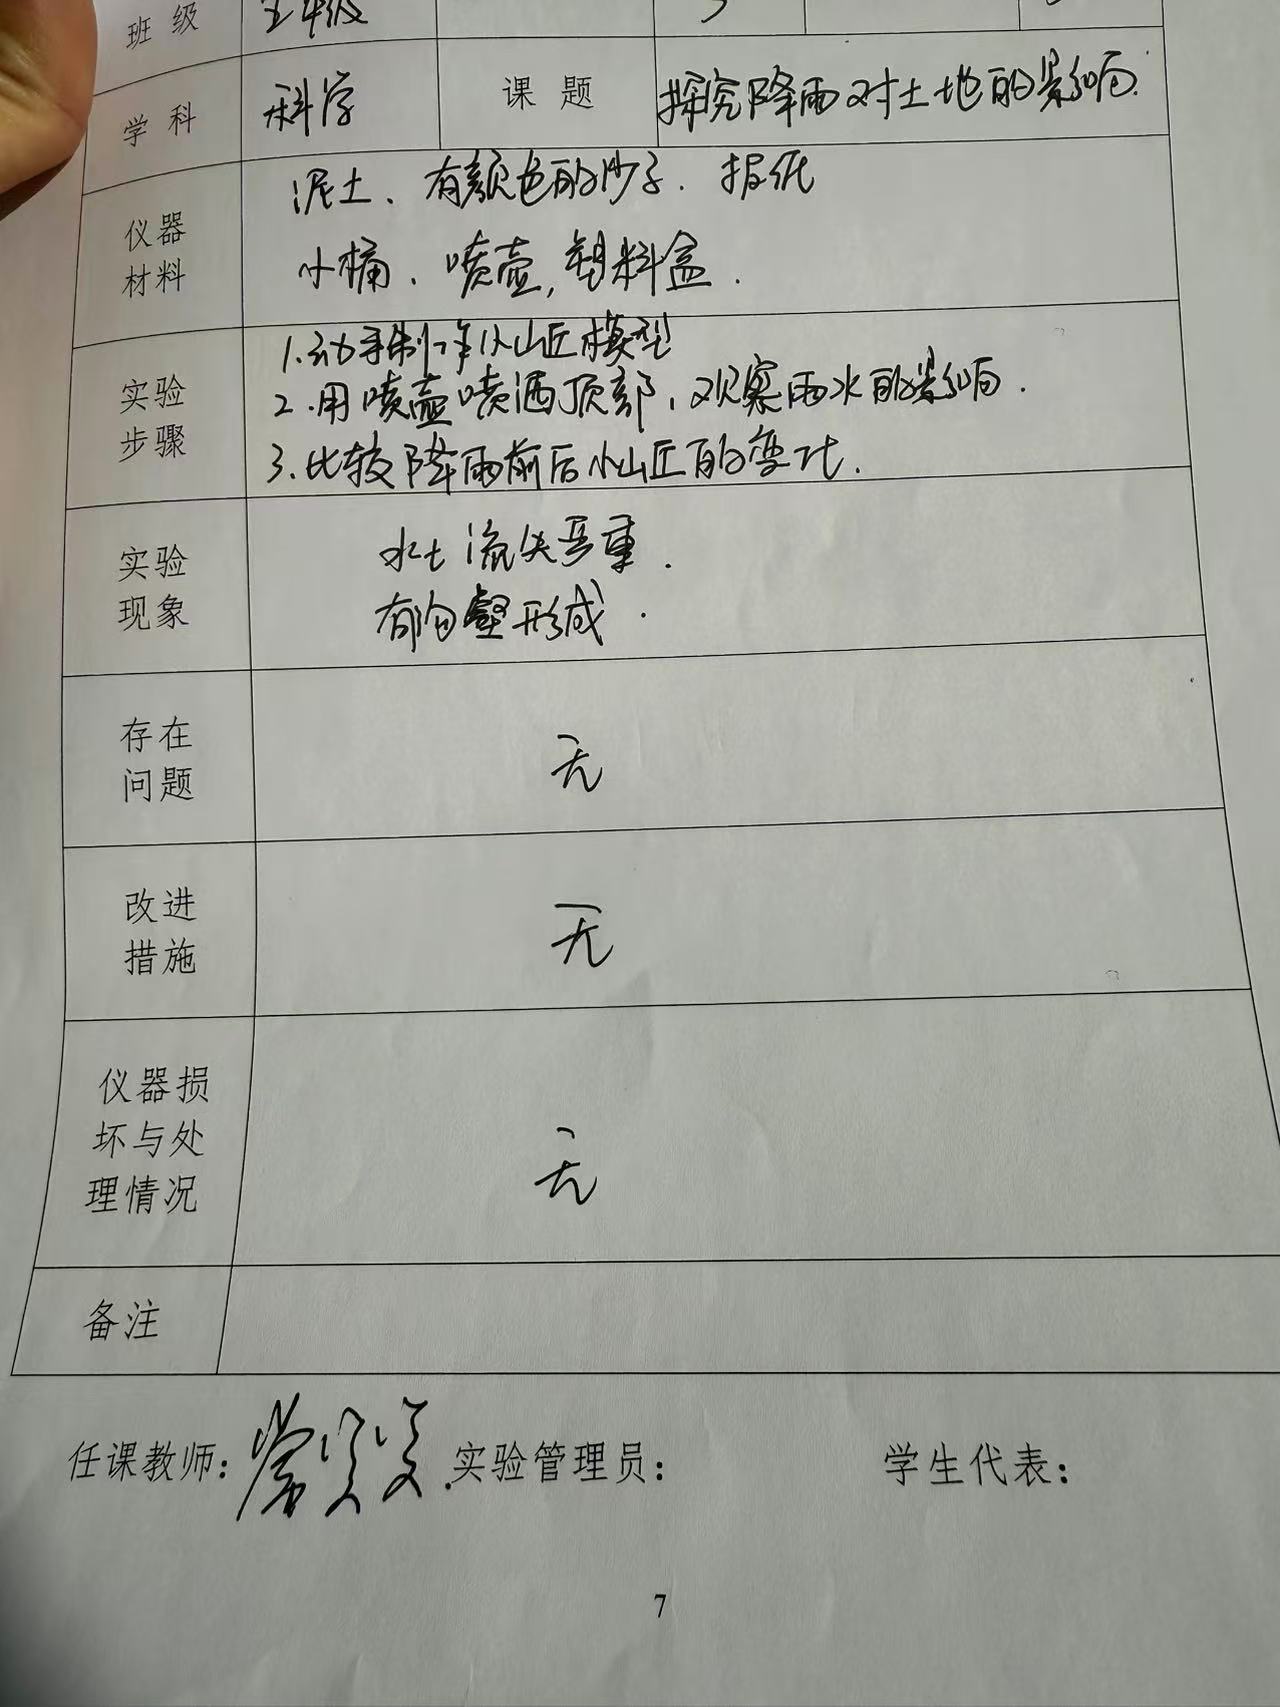 班级 五年级
学科 科学 课题 探究降雨对土地的影响.
仪器
材料
泥土、有颜色的沙子. 报纸
小桶. 喷壶, 塑料盒.
实验
步骤
1.动手制作小山丘模型
2.用喷壶喷洒顶部, 观察雨水的影响.
3.比较降雨前后小山丘的变化.
实验
现象
水土流失严重.
有沟壑形成.
存在
问题
无
改进
措施
无
仪器损
坏与处
理情况
无
备注
任课教师: 实验管理员: 学生代表:
7